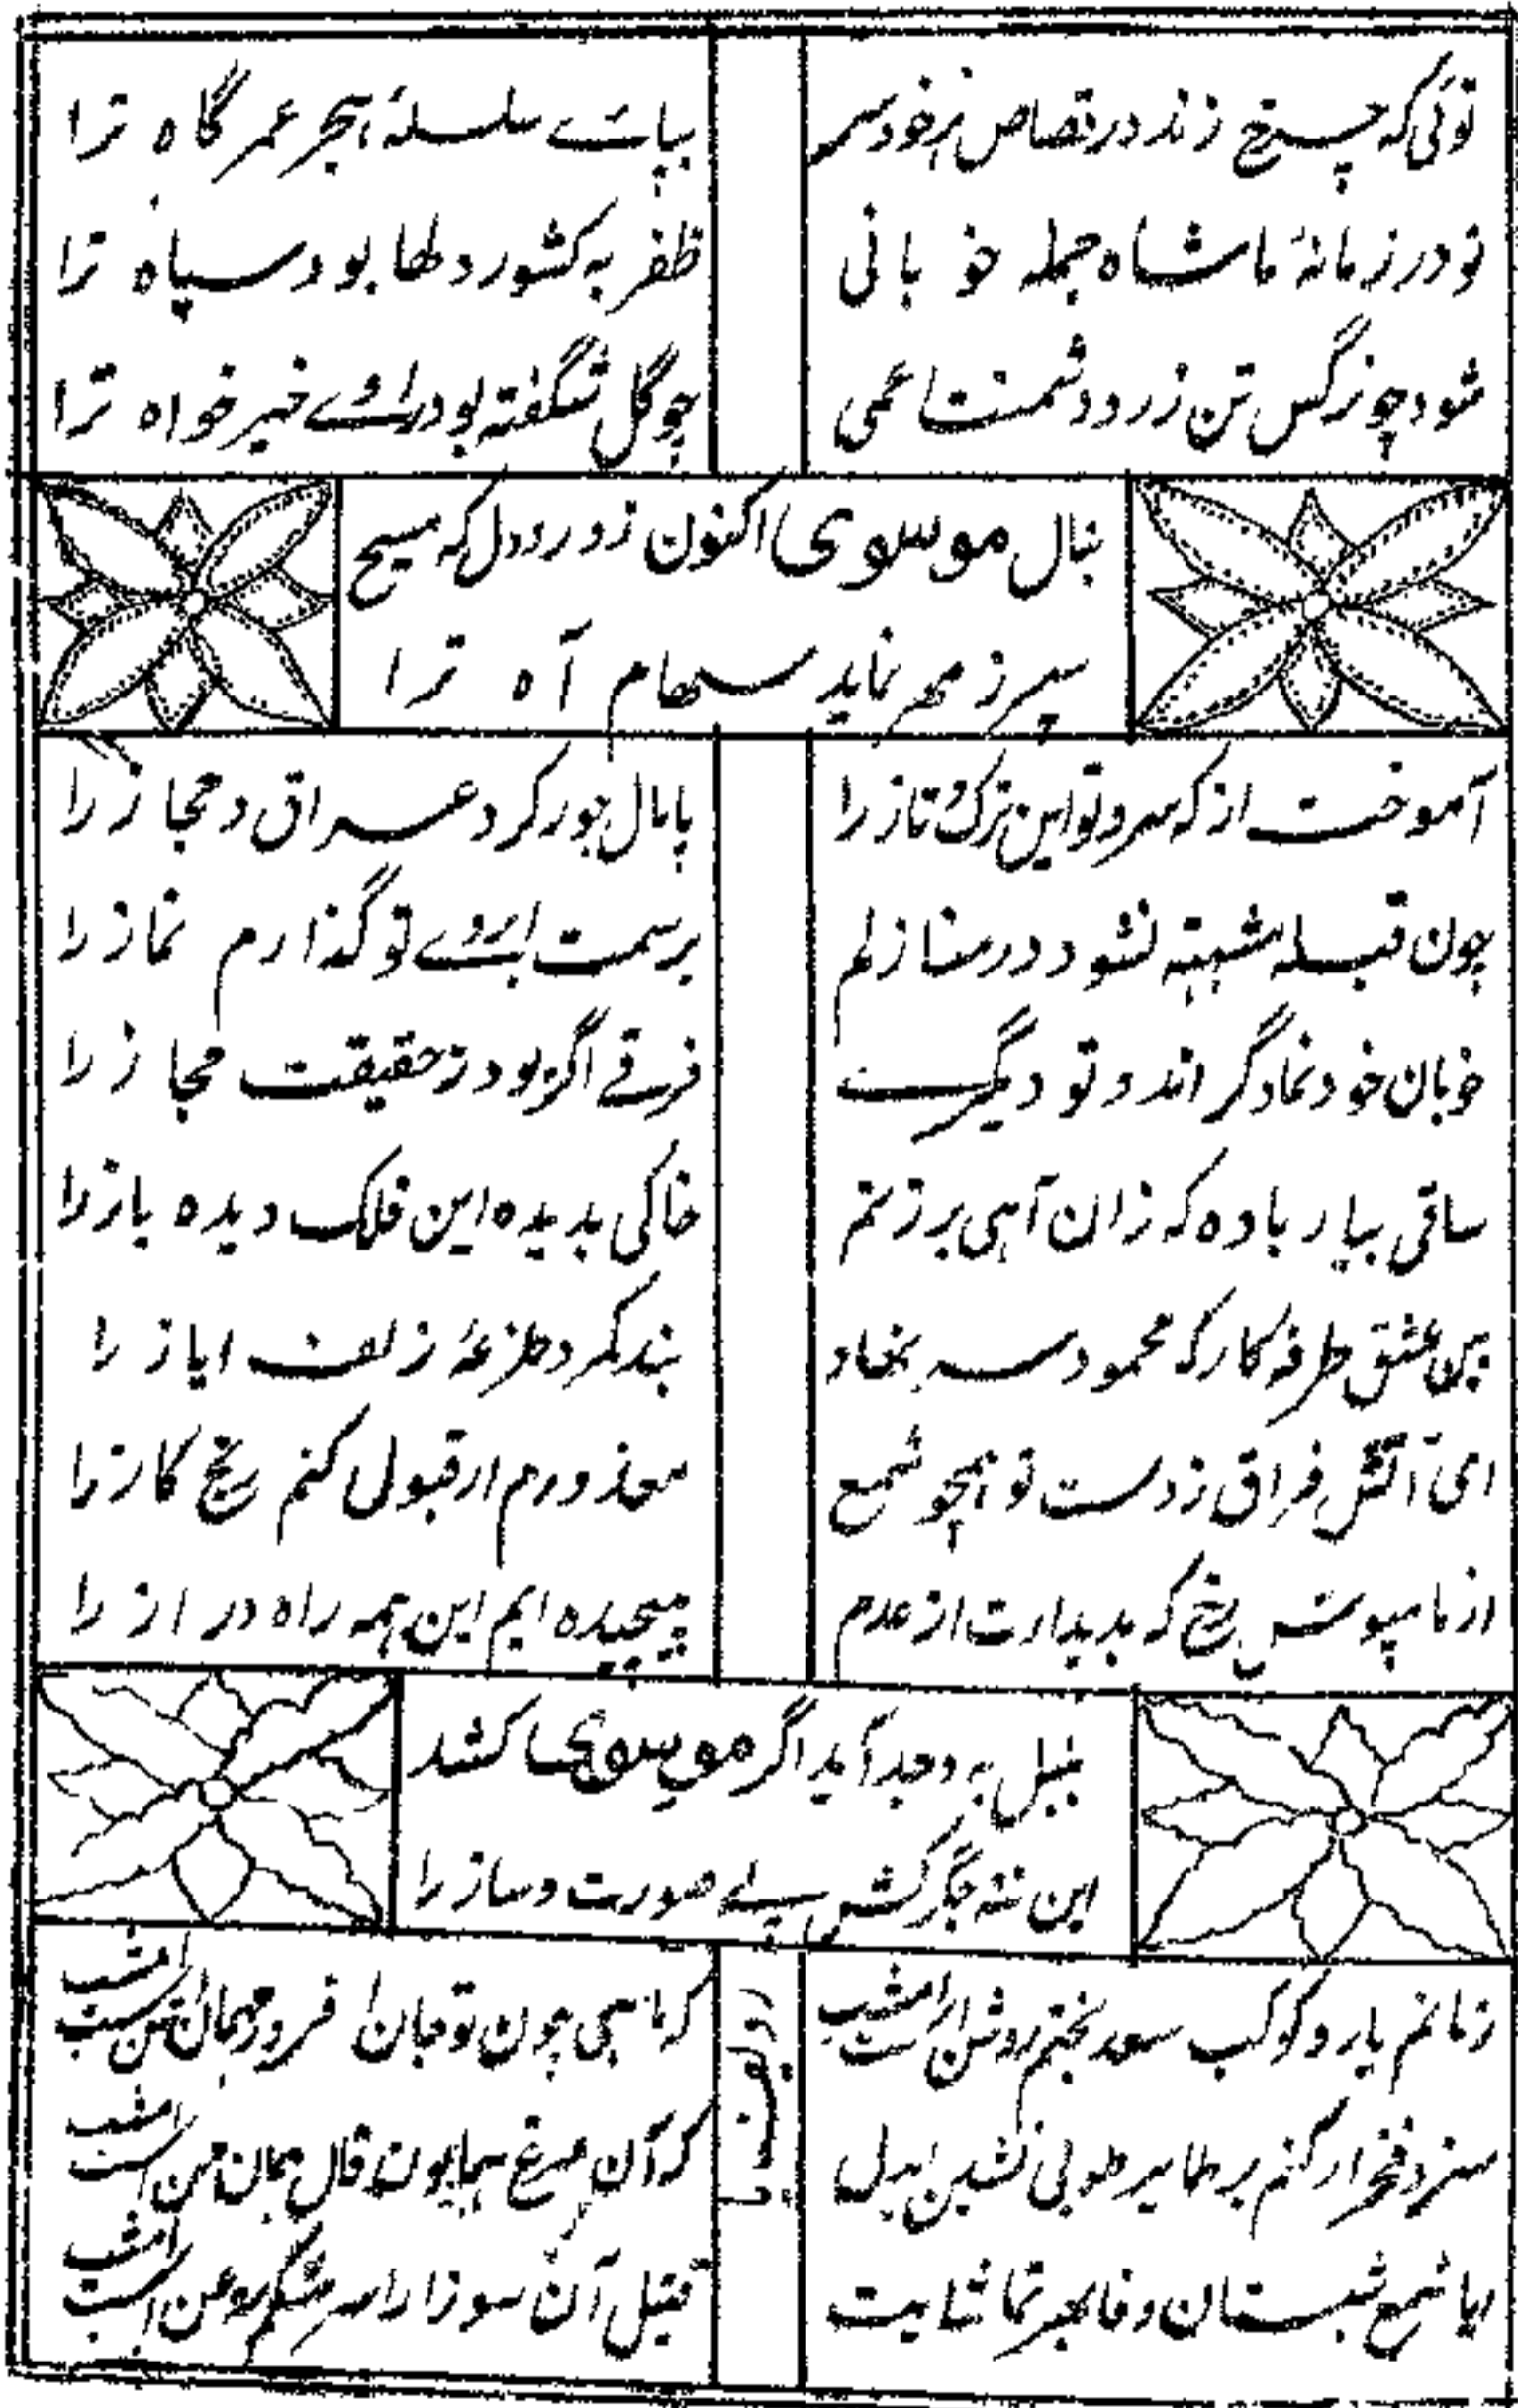 توئی که چرخ زند در قصاص بر خود سر
بپاست سلسلهٔ هجر عمر گاه ترا
تو در زمانهٔ ما شاه جمله خوبانی
ظفر به کشور دلها بود سپاه ترا
شود چو نرگس تن زرد دشمنت اعمی
چو گل شگفته بود روے خیر خواه ترا
بنال موسوی اکنون ز درد دل که مسیح
سپر ز مهر نماید سهام آه ترا
آموخت از که سرو تو این ترک و تاز را
پامال جور کرد عراق و حجاز را
چون قبله مشتبه نشود در منازلم
بر سمت ابروے تو گذارم نماز را
خوبان خود نما دگر اند و تو دیگرے
فرقے اگر بود ز حقیقت مجاز را
ساقی بیار باده که زان آبی بر زنم
خاکی بدیده این فلک دیده باز را
بین عشق طرفه کار که محمود سر نهاد
بند کمر د طرهٔ زلف ایاز را
ای آتش فراق ز دست تو همچو شمع
معذورم ار قبول کنم رنج کاز را
از ما مپوش رخ که بدیدارت از عدم
پیچیده ایم این همه راه دراز را
بلبل به وجد آید اگر موسوی کشد
این نغمه جگر کش بے صورت و ساز را
زمانم یار و کوکب سعد بختم روشن است امشب
که ماهی چون تو جان افروز مهمان من است امشب
سزد فخر ار کنم بر طایر طوبی نشین ایدل
که آن مرغ همایون فال مهمان من است امشب
ایا شمع شبستان وفا بهر تماشایت
فتیل آن سوز ار سر شکم روغن است امشب